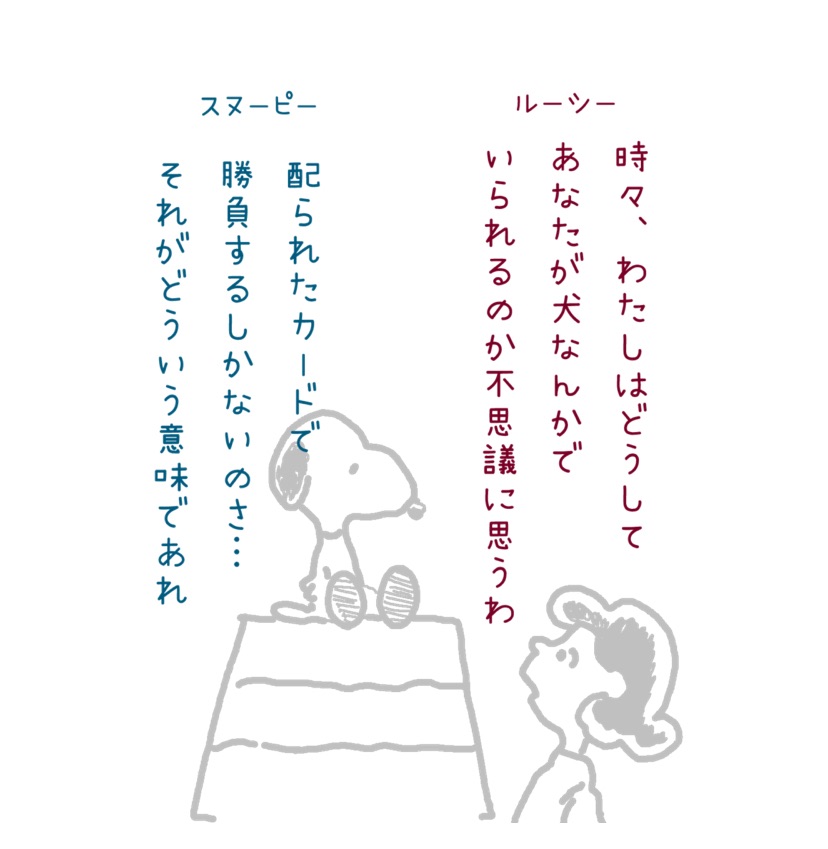 ルーシー
時々、わたしはどうして
あなたが犬なんかで
いられるのか不思議に思うわ
スヌーピー
配られたカードで
勝負するしかないのさ…
それがどういう意味であれ